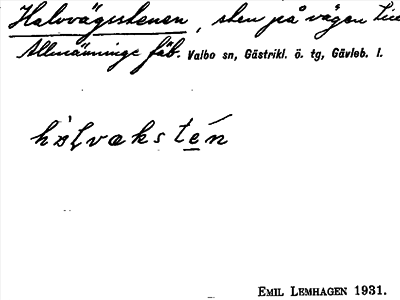 Halvvägsstenen, sten på vägen till
Allmänninge fäb. Valbo sn, Gästrikl. ö. tg, Gävleb. l.
hàlvæksten
EMIL LEMHAGEN 1931.